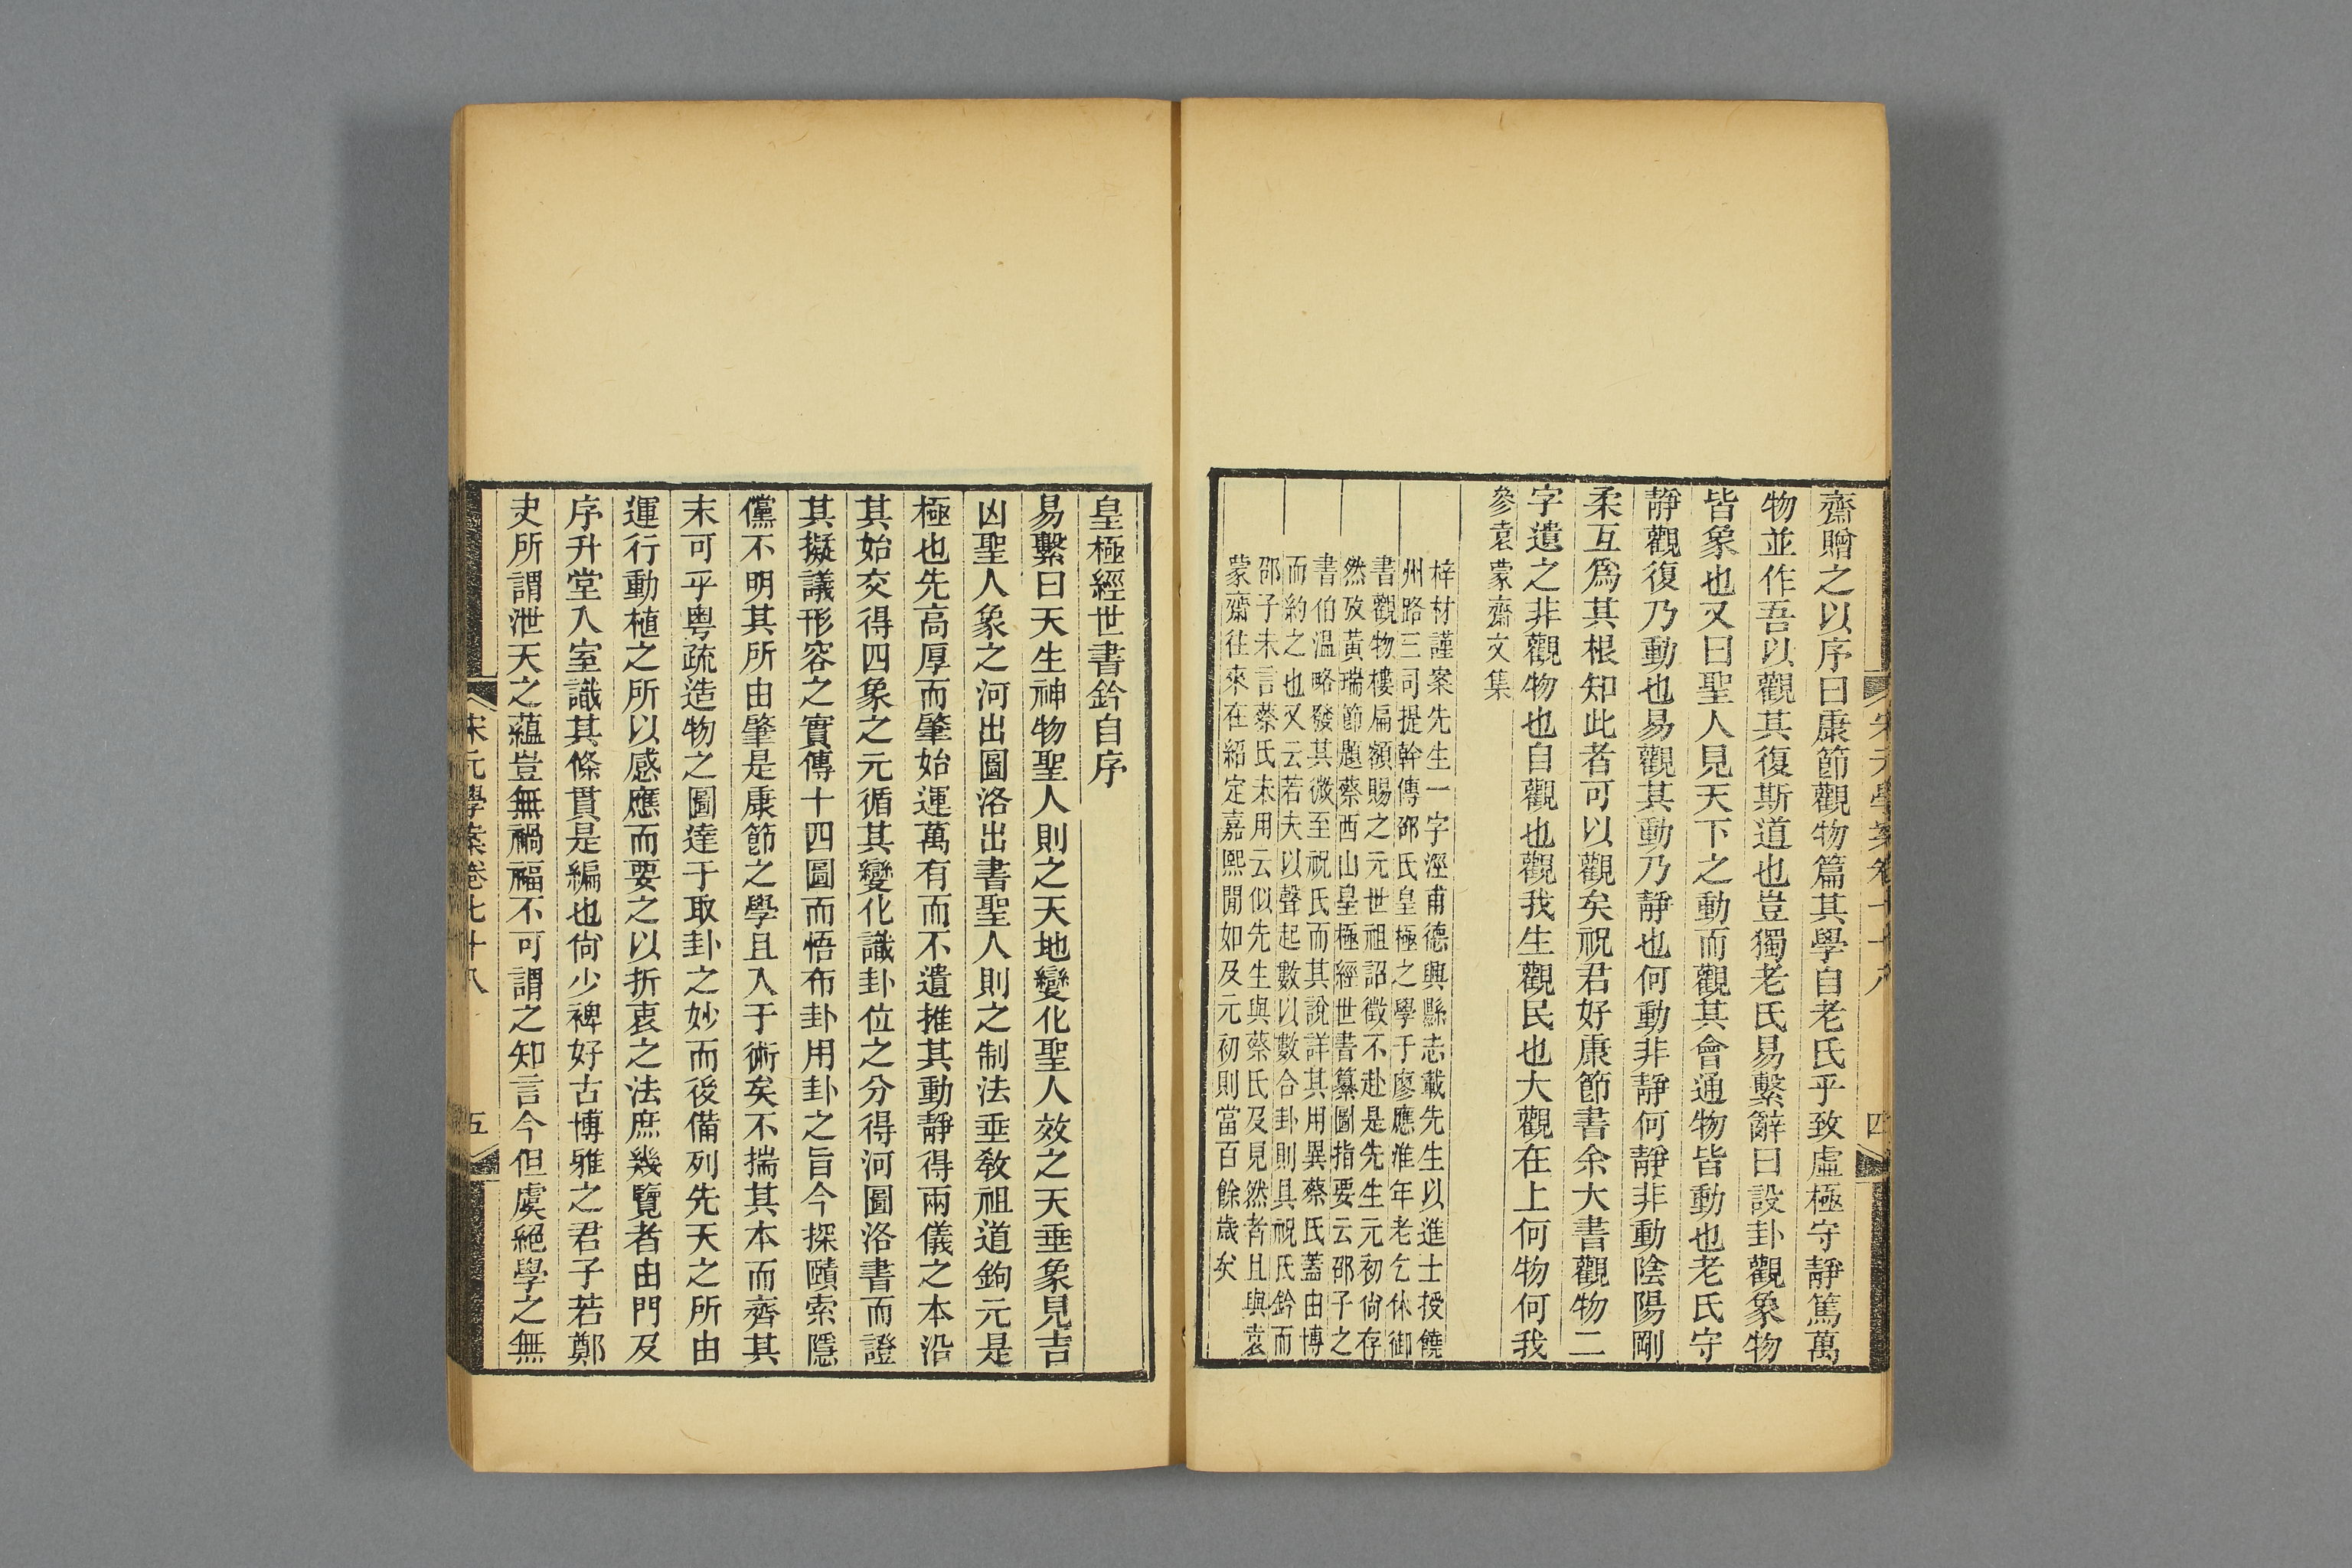 宋元學案卷七十八
四
齋贈之以序曰康節觀物篇其學自老氏乎致虛極守靜篤萬
物並作吾以觀其復斯道也豈獨老氏易繫辭曰設卦觀象物
皆象也又曰聖人見天下之動而觀其會通物皆動也老氏守
靜觀復乃動也易觀其動乃靜也何動非靜何靜非動陰陽剛
柔互爲其根知此者可以觀矣祝君好康節書余大書觀物二
字遺之非觀物也自觀也觀我生觀民也大觀在上何物何我
參袁蒙齋文集
梓材謹案先生一字涇甫德興縣志載先生以進士授饒
州路三司提幹傳邵氏皇極之學于廖應淮年老乞休御
書觀物樓扁額賜之元世祖詔徵不赴是先生元初尙存
然攷黃瑞節題蔡西山皇極經世書纂圖指要云邵子之
書伯溫略發其微至祝氏而其說詳其用異蔡氏蓋由博
而約之也又云若夫以聲起數以數合卦則具祝氏鈐而
邵子未言蔡氏未用云似先生與蔡氏及見然者且與袁
蒙齋往來在紹定嘉熙閒如及元初則當百餘歲矣
皇極經世書鈐自序
易繫曰天生神物聖人則之天地變化聖人效之天垂象見吉
凶聖人象之河出圖洛出書聖人則之制法垂敎祖道鉤元是
極也先高厚而肇始運萬有而不遺推其動靜得兩儀之本沿
其始交得四象之元循其變化識卦位之分得河圖洛書而證
其擬議形容之實傳十四圖而悟布卦用卦之旨今探賾索隱
儻不明其所由肇是康節之學且入于術矣不揣其本而齊其
末可乎粵疏造物之圖達于取卦之妙而後備列先天之所由
運行動植之所以感應而要之以折衷之法庶幾覽者由門及
序升堂入室識其條貫是編也尙少裨好古博雅之君子若鄭
史所謂泄天之蘊豈無禍福不可謂之知言今但虞絕學之無
宋元學案卷七十八
五